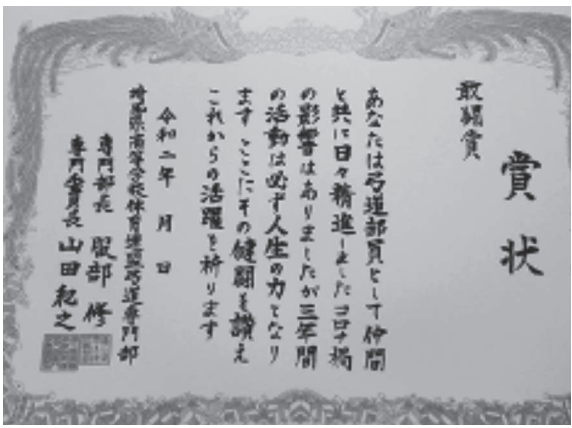 賞状
敢闘賞
あなたは弓道部員として仲間
と共に日々精進しましたコロナ禍
の影響はありましたが三年間
の活動は必ず人生の力となり
ますここにその健闘を讃え
これからの活躍を祈ります
令和二年 月 日
埼玉県高等学校体育連盟弓道専門部
専門部長 服部 修
専門委員長 山田